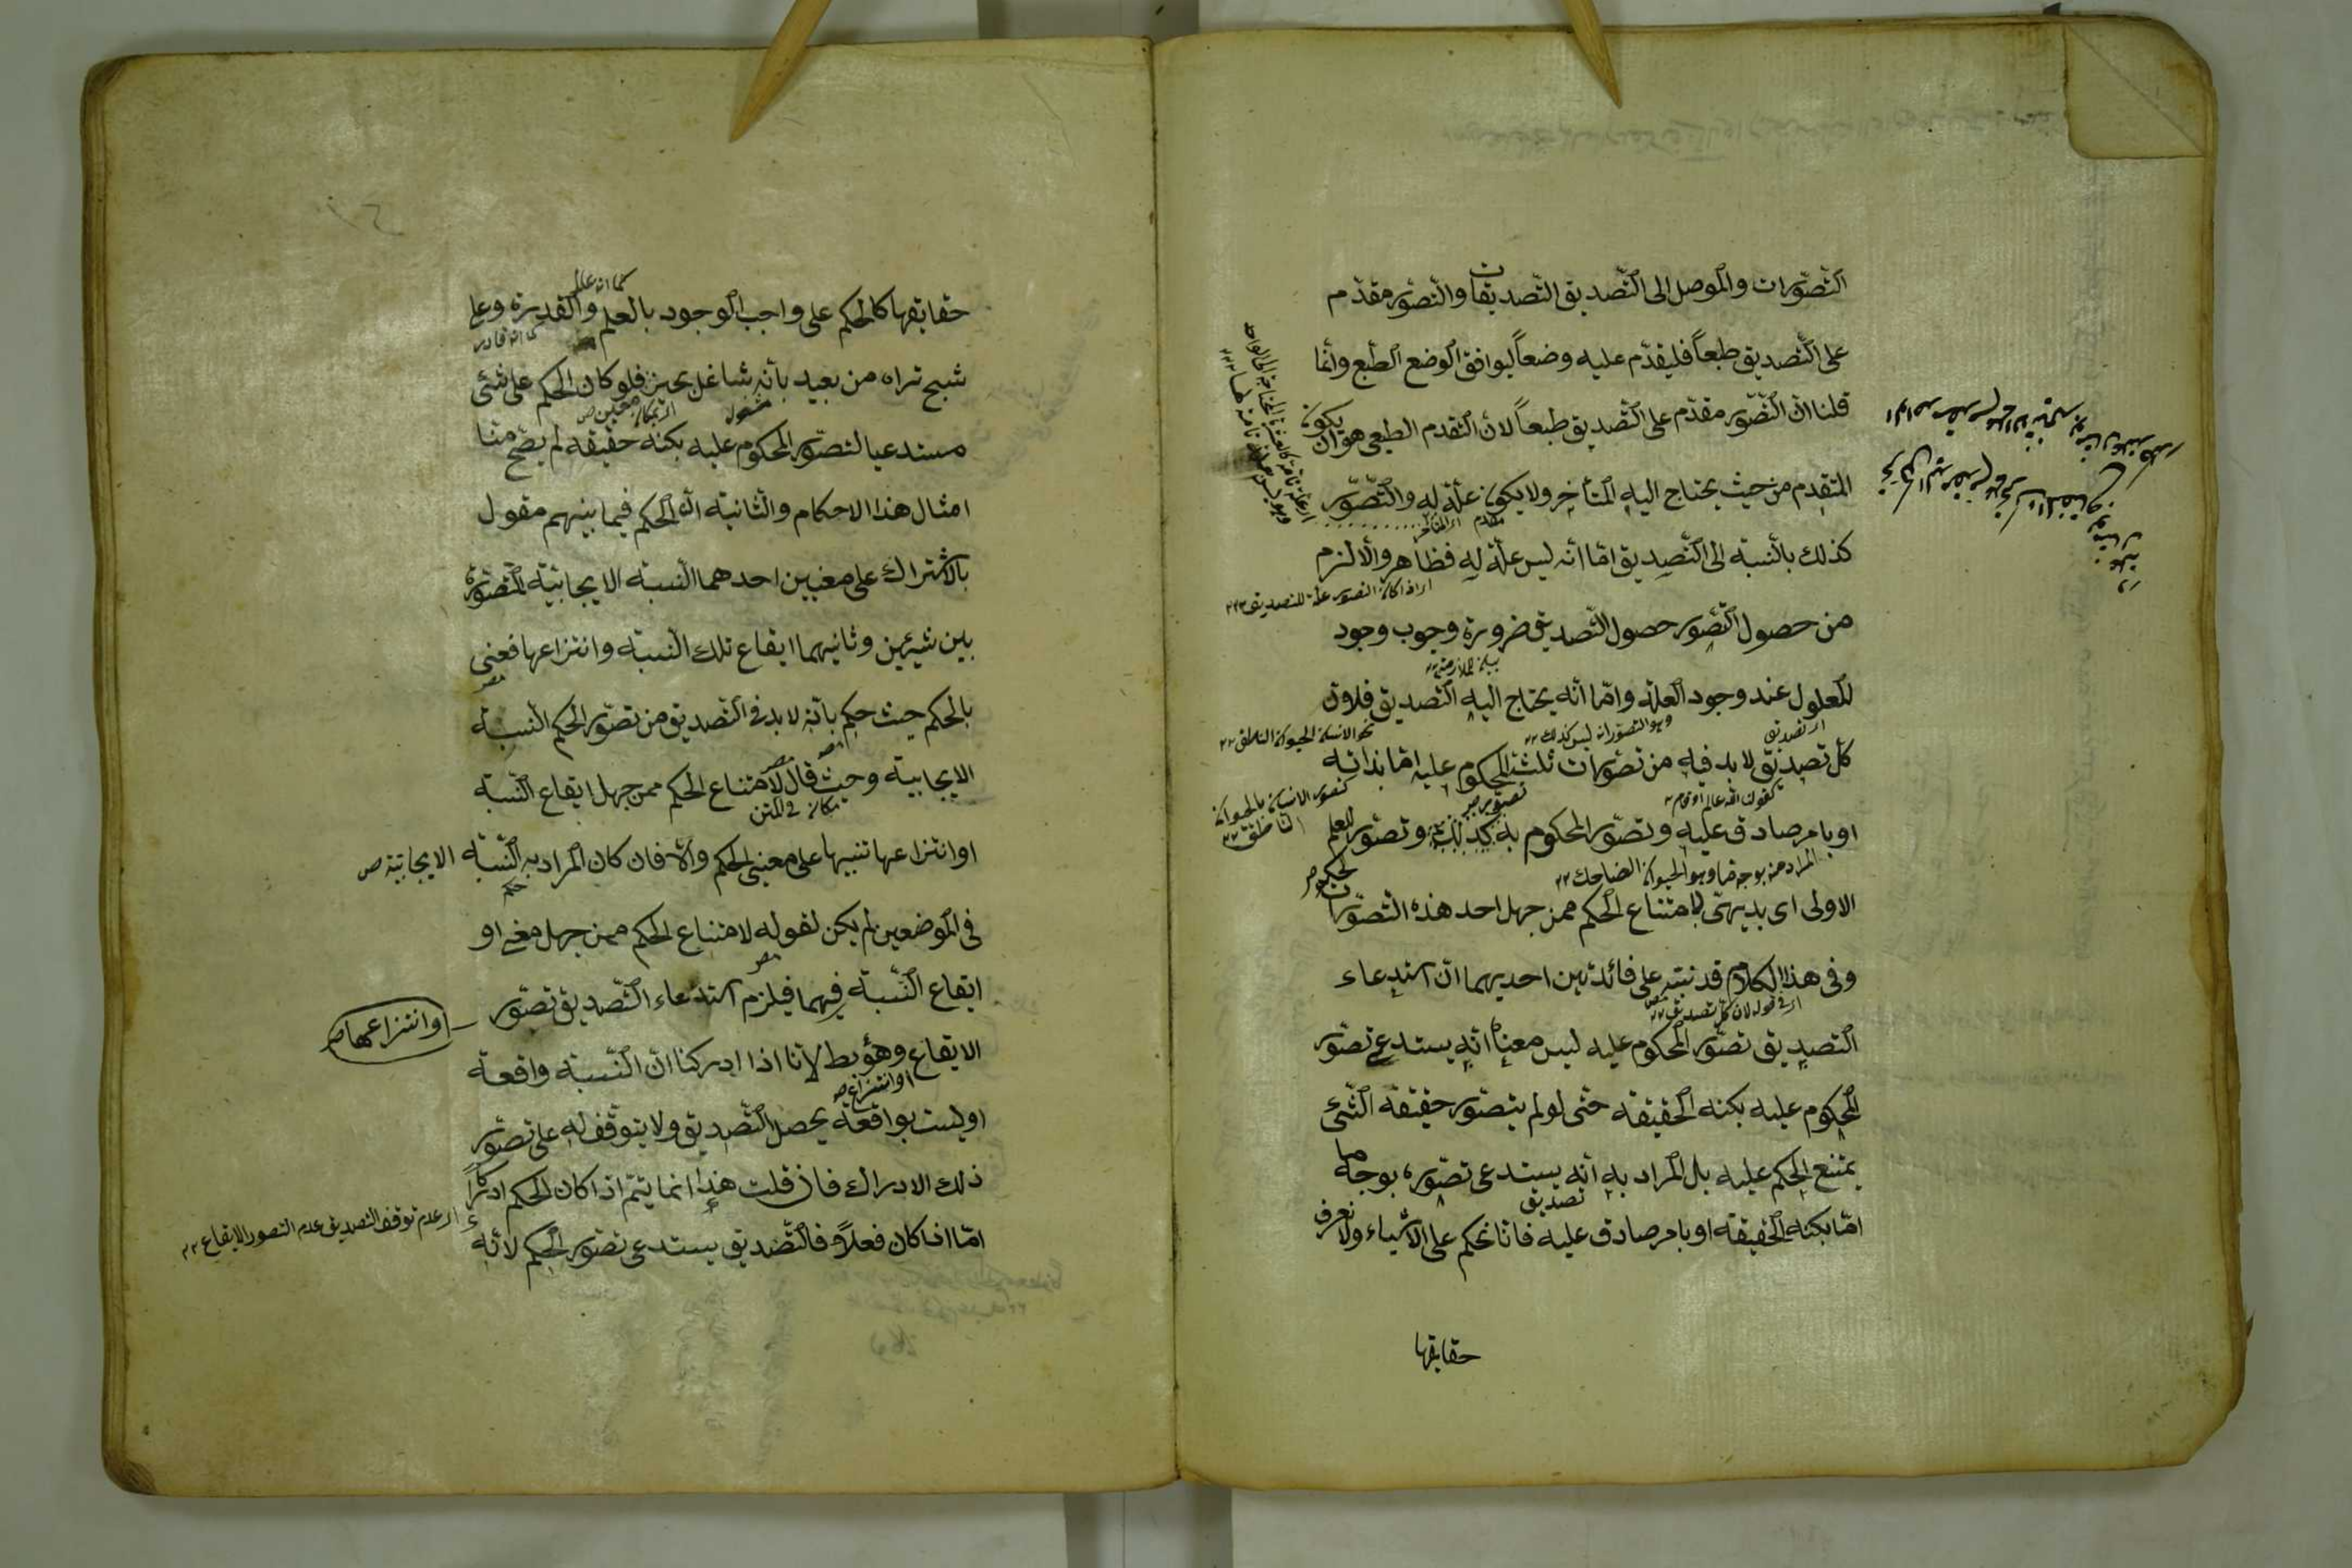 التصورات والموصل الى التصديق التصديقات والتصور مقدم
على التصديق طبعاً فليقدم عليه وضعاً ليوافق الوضع الطبع وانما
قلنا ان التصور مقدم على التصديق طبعاً لان التقدم الطبعى هو ان يكون
المتقدم من حيث يحتاج اليه المتأخر ولا يكون علة له والتصور
كذلك بالنسبة الى التصديق اما انه ليس علة له فظاهر والا لزم
اى اذا كان التصور علة للتصديق
من حصول التصور حصول التصديق ضرورة وجوب وجود
بيان للملازمة
المعلول عند وجود العلة واما انه يحتاج اليه التصديق فلان
اى تصديق
نحو الانسان الحيوان الناطق
كل تصديق لا بد فيه من تصورات ثلث المحكوم عليه اما بذاته
كتصور الانسان بالحيوان الناطق
او بامر صادق عليه وتصور المحكوم به كذلك وتصور الحكم للعلم
المراد منه بوجه ما وهو الحيوان الضاحك
الاولى اى بديهى لامتناع الحكم ممن جهل احد هذه التصورات
وفى هذا الكلام قد نبه على فائدتين احديهما ان استدعاء
اى فى قوله لان كل تصديق
التصديق تصور المحكوم عليه ليس معناه انه يستدعى تصور
المحكوم عليه بكنه الحقيقة حتى لو لم يتصور حقيقة الشئ
يمتنع الحكم عليه بل المراد به انه يستدعى تصوره بوجه ما
تصديق
اما بكنه الحقيقة او بامر صادق عليه فانا نحكم على الاشياء ولا نعرف
حقايقها
كما انه عالم
حقايقها كالحكم على واجب الوجود بالعلم والقدرة وعلى
كما انه قادر
شبح تراه من بعيد بأنه شاغل بحيز فلو كان الحكم على شئ
مشغول
معين
مستدعيا لتصور المحكوم عليه بكنه حقيقته لم يصح منا
امثال هذا الاحكام والثانية ان الحكم فيما بينهم مقول
بالاشتراك على معنيين احدهما النسبة الايجابية المتصورة
بين شيئين وثانيهما ايقاع تلك النسبة وانتزاعها فعنى
بالحكم حيث حكم بانه لا بد فى التصديق من تصور الحكم النسبة
الايجابية وحيث قال لامتناع الحكم ممن جهل ايقاع النسبة
او انتزاعها تنبيها على معنيى الحكم والا فان كان المراد به النسبة الايجابية
حكم
فى الموضعين لم يكن لقوله لامتناع الحكم ممن جهل معنى او
ايقاع النسبة فيهما فيلزم استدعاء التصديق تصور
او انتزاعها
الايقاع وهو بط لانا اذا ادركنا ان النسبة واقعة
او انتزاع
او ليست بواقعة يحصل التصديق ولا يتوقف له على تصور
ذلك الادراك فان قلت هذا انما يتم اذا كان الحكم ادراكاً
اى عدم توقف التصديق عدم التصور الايقاع
اما اذا كان فعلاً فالتصديق يستدعى تصور الحكم لانه